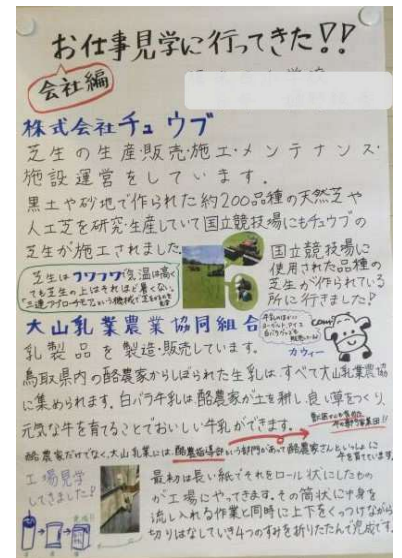 お仕事見学に行ってきた!!
会社編
株式会社チュウブ
芝生の生産・販売・施工・メンテナンス・
施設運営をしています。
黒土や砂地で作られた約200品種の天然芝や
人工芝を研究・生産していて国立競技場にもチュウブの
芝生が施工されました。
芝生はフワフワ気温は高く
ても芝生の上はそれほど暑くない。
国立競技場に
使用された品種の
芝生が作られている
所に行きました!
大山乳業農業協同組合
cow!
カウィー
乳製品を製造・販売しています。
鳥取県内の酪農家からしぼられた生乳は、すべて大山乳業農協
に集められます。白バラ牛乳は酪農家が土を耕し、良い草をつくり、
元気な牛を育てることでおいしい牛乳ができます。
酪農家だけでなく、大山乳業には、酪農指導部という部門があって酪農家さんといっしょに
牛を育てています。
工場見学
してきました!
最初は長い紙でそれをロール状にしたもの
が工場にやってきます。その筒状に中身を
流し入れる作業と同時に上下をくっつけながら
切りはなしていき4つのすみを折りたたんで完成です。